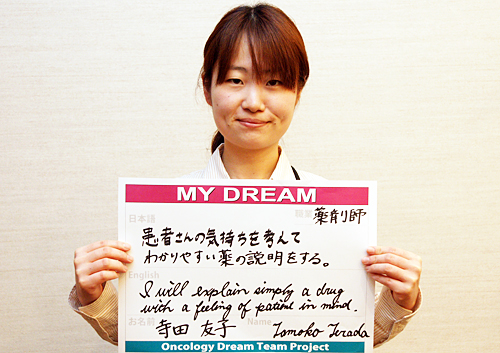 MY DREAM
日本語
職業 薬剤師
患者さんの気持ちを考えて
わかりやすい薬の説明をする。
English
I will explain simply a drug
with a feeling of patient in mind.
お名前 寺田 友子 Name Tomoko Terada
Oncology Dream Team Project